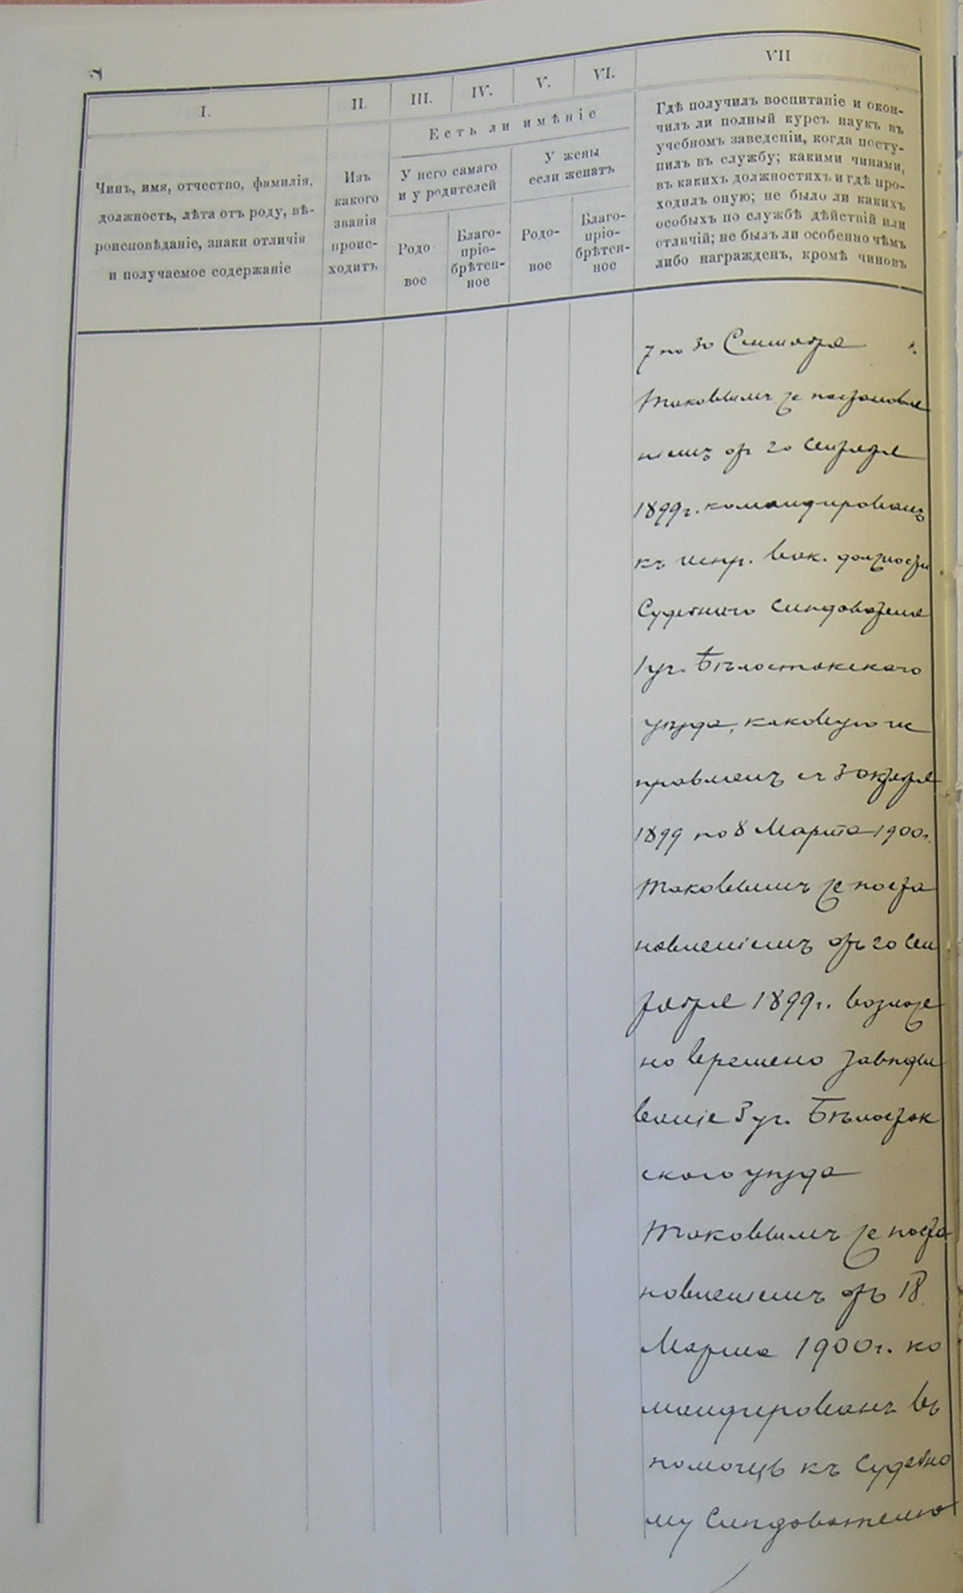 I.
II.
III.
IV.
V.
VI.
VII
Чинъ, имя, отчество, фамилія,
должность, лѣта отъ роду, вѣ-
роисповѣданіе, знаки отличія
и получаемое содержаніе
Изъ
какого
званія
проис-
ходитъ
Есть ли имѣніе
У него самаго
и у родителей
У жены
если женатъ
Родо
вое
Благо-
пріо-
брѣтен-
ное
Родо-
вое
Благо-
пріо-
брѣтен-
ное
Гдѣ получилъ воспитаніе и окон-
чилъ ли полный курсъ наукъ въ
учебномъ заведеніи, когда посту-
пилъ въ службу; какими чинами,
въ какихъ должностяхъ и гдѣ про-
ходилъ оную; не было ли какихъ
особыхъ по службѣ дѣйствій или
отличій; не былъ ли особенно чѣмъ
либо награжденъ, кромѣ чиновъ
7 по 30 Сентября
Таковымъ же постановле
ніемъ от 20 Сентября
1899г. командированъ
къ испр. вак. должности
Судебнаго Слѣдователя
1 уч. Бѣлостокскаго
уѣзда, каковую ис
правлялъ съ 3 октября
1899 по 8 Марта 1900г.
Таковымъ же поста
новленіемъ отъ 20 Сен
тября 1899г. возложе
но времено завѣды
ваніе 3 уч. Бѣлосток
скаго уѣзда
Таковымъ же поста
новленіемъ отъ 18
Марта 1900г. ко
мандированъ въ
помощь къ Судебно
му Слѣдователю